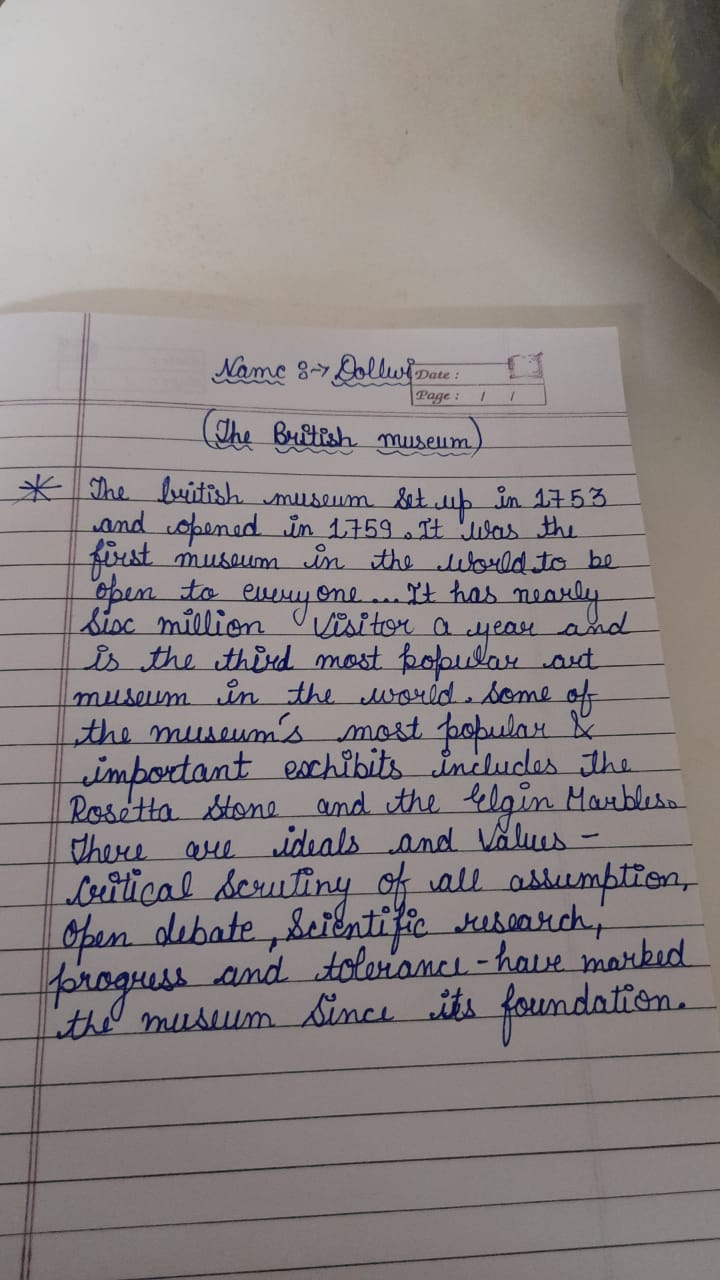 Name :→ Dollwi
Date :
Page : / /
(The British museum)
* The british museum set up in 1753
and opened in 1759. It was the
first museum in the world to be
open to everyone... It has nearly
six million visitor a year and
is the third most popular art
museum in the world. Some of
the museum's most popular &
important exhibits includes the
Rosetta Stone and the Elgin Marbles.
There are ideals and values –
critical scrutiny of all assumption,
open debate, scientific research,
progress and tolerance - have marked
the museum since its foundation.